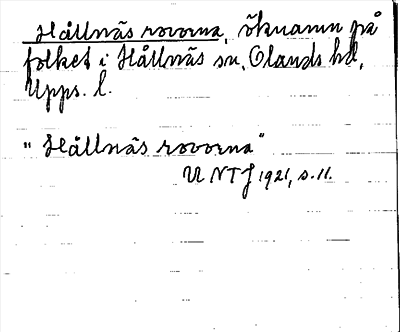 Hållnäs rovorna, öknamn på
folket i Hållnäs sn, Olands hd,
Upps. l.
"Hållnäs rovorna"
UNTJ 1921, s. 11.